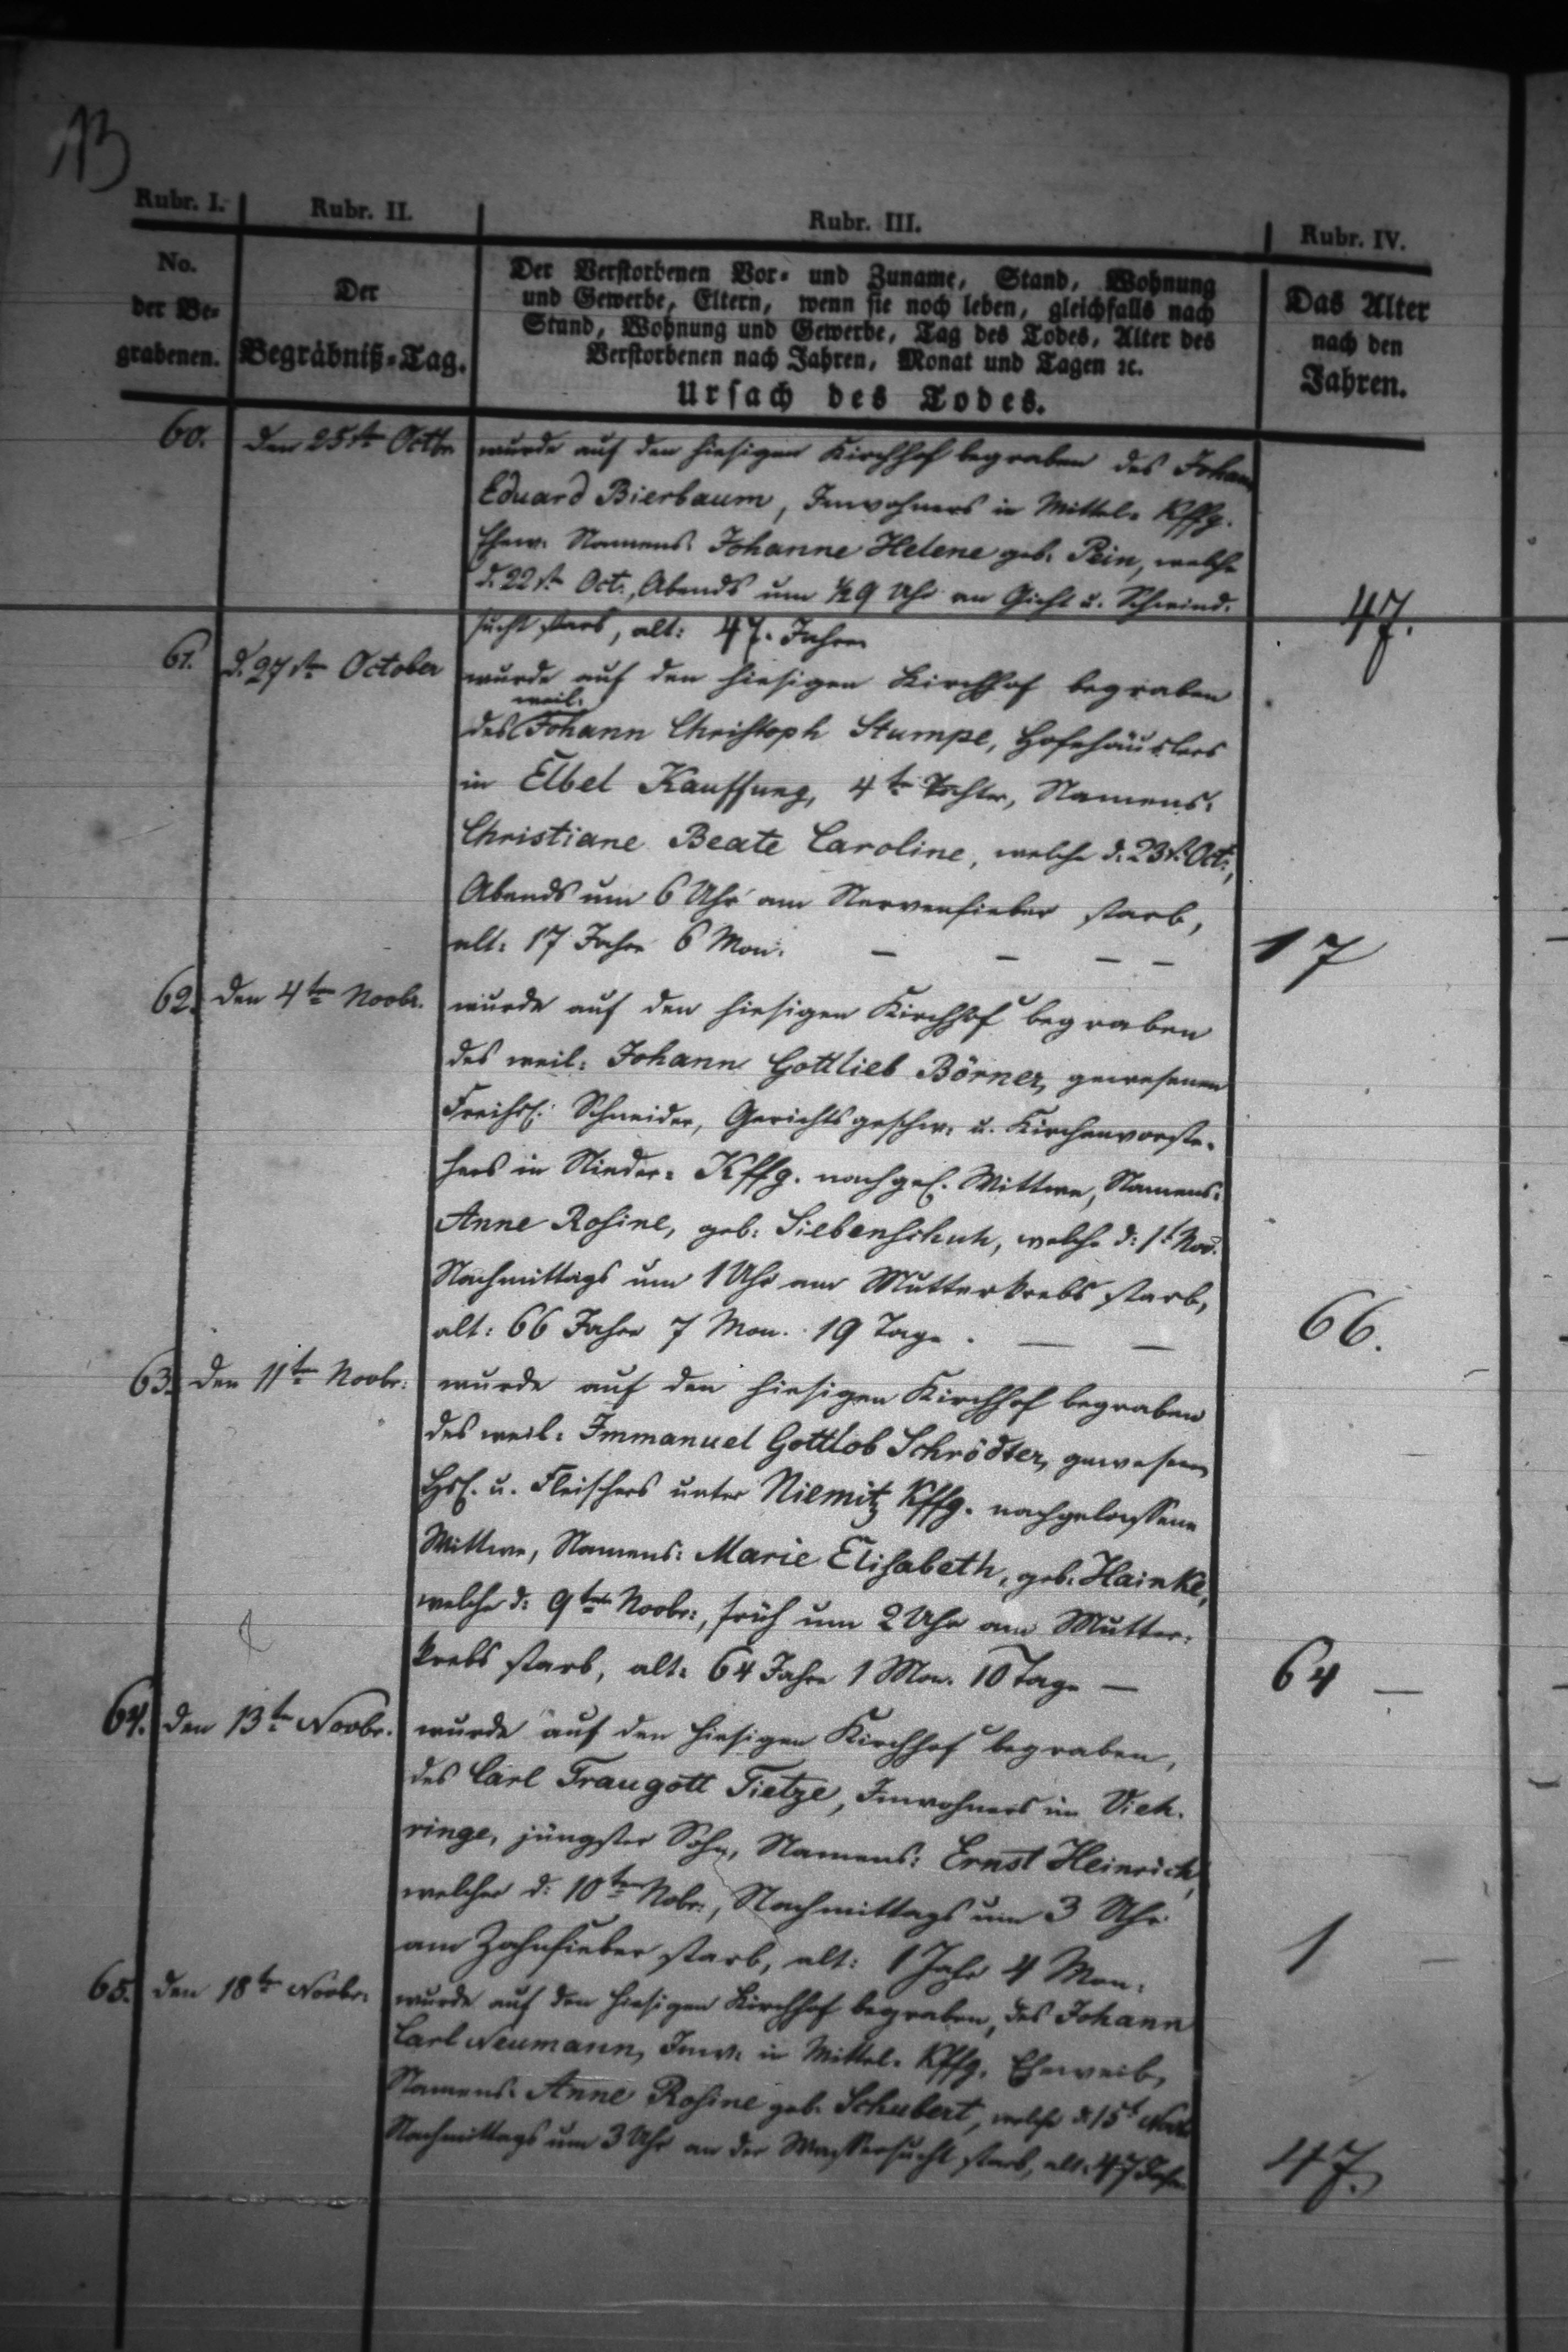 Rubr. I. Rubr. II. Rubr. III. Rubr. IV.
No.
der Be-
grabenen.
Der
Begräbniß-Tag.
Der Verstorbenen Vor- und Zuname, Stand, Wohnung
und Gewerbe, Eltern, wenn sie noch leben, gleichfalls nach
Stand, Wohnung und Gewerbe, Tag des Todes, Alter des
Verstorbenen nach Jahren, Monat und Tagen ꝛc.
Ursach des Todes.
Das Alter
nach den
Jahren.
60. Den 25st. Octbr. wurde auf den hiesigen Kirchhof begraben des Johann
Eduard Bierbaum, Inwohners in Mittel-Kffg.
Ehew. Namens: Johanne Helene geb. Pein, welche
d. 22st. Oct., Abends um ½9 Uhr an Gicht u. Schwind-
sucht starb, alt: 47. Jahre 47.
61. d. 27st. October wurde auf den hiesigen Kirchhof begraben
weil.
des Johann Christoph Stumpe, Hofehäuslers
in Elbel Kauffung, 4te Tochter, Namens:
Christiane Beate Caroline, welche d. 23st. Oct.,
Abends um 6 Uhr am Nervenfieber starb,
alt: 17 Jahre 6 Mon. — — — — 17
62. den 4ten Novbr. wurde auf den hiesigen Kirchhof begraben
des weil: Johann Gottlieb Börner, gewesenen
Freihsl. Schneider, Gerichtsgeschw. u. Kirchenvorste-
hers in Nieder-Kffg. nachgel. Wittwe, Namens:
Anne Rosine, geb: Siebenschuh, welche d: 1t Nov.
Nachmittags um 1 Uhr am Mutterkrebs starb,
alt: 66 Jahre 7 Mon. 19 Tage. — — 66.
63. den 11ten Novbr: wurde auf den hiesigen Kirchhof begraben
des weil. Immanuel Gottlob Schrödter, gewesenen
Hsl. u. Fleischers unter Niemitz Kffg. nachgelassene
Wittwe, Namens: Marie Elisabeth, geb. Hainke,
welche d: 9ten Novbr:, früh um 2 Uhr am Mutter-
krebs starb, alt: 64 Jahre 1 Mon. 10 Tage — 64 —
64. den 13ten Novbr. wurde auf den hiesigen Kirchhof begraben,
des Carl Traugott Tietze, Inwohners im Vieh-
ringe, jüngster Sohn, Namens: Ernst Heinrich,
welcher d: 10ten Nobr:, Nachmittags um 3 Uhr
am Zahnfieber starb, alt: 1 Jahr 4 Mon. 1
65. den 18ten Novbr: wurde auf den hiesigen Kirchhof begraben, des Johann
Carl Neumann, Inw. in Mittel-Kffg. Eheweib,
Namens: Anne Rosine geb. Schubert, welche d. 15t Novbr
Nachmittags um 3 Uhr an der Wassersucht starb, alt: 47 Jahre 47.